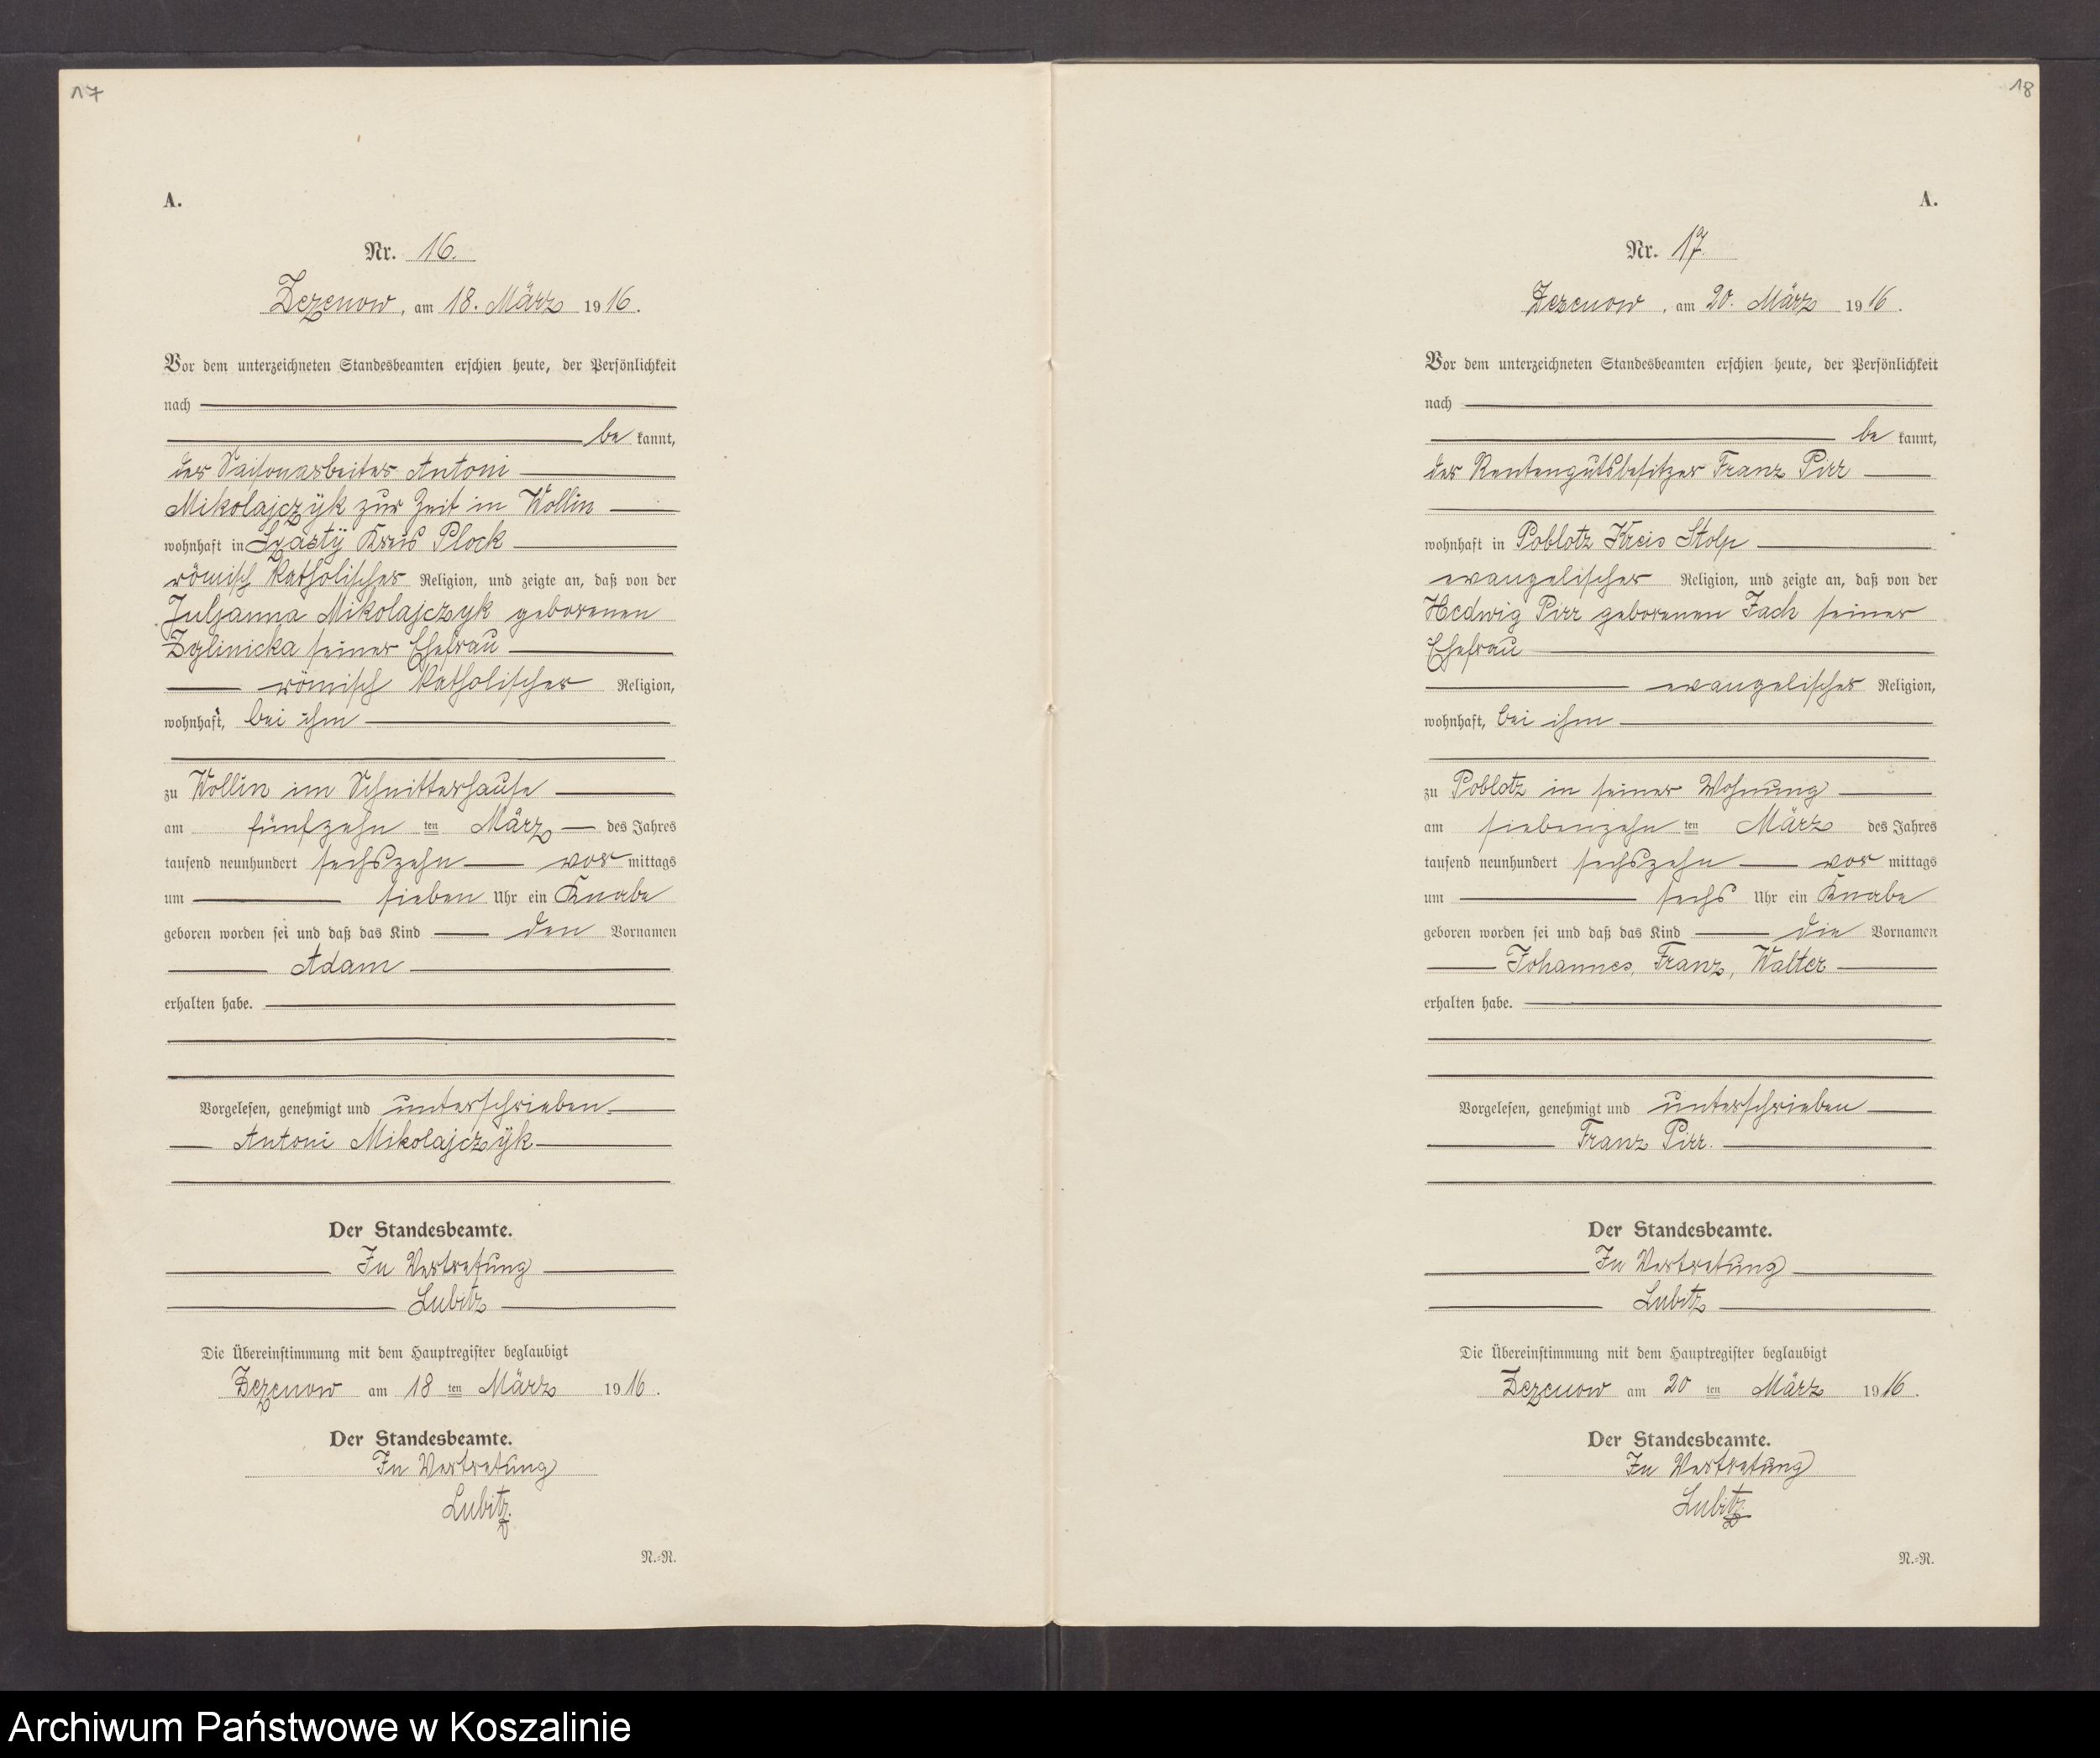 17
A.
Nr. 16.
Zezenow, am 18. März 1916.
Vor dem unterzeichneten Standesbeamten erschien heute, der Persönlichkeit
nach
be kannt,
der Saisonarbeiter Antoni
Mikolajczÿk zur Zeit in Wollin
wohnhaft in Kreis Plock
römisch katholischer Religion, und zeigte an, daß von der
Juljanna Mikolajczyk geborenen
Zglinicka seiner Ehefrau
römisch katholischer Religion,
wohnhaft, bei ihm
zu Wollin im Schnitterhause
am fünfzehn ten März des Jahres
tausend neunhundert sechszehn vor mittags
um sieben Uhr ein Knabe
geboren worden sei und daß das Kind den Vornamen
Adam
erhalten habe.
Vorgelesen, genehmigt und unterschrieben
Antoni Mikolajczÿk
Der Standesbeamte.
In Vertretung
Lubitz
Die Übereinstimmung mit dem Hauptregister beglaubigt
Zezenow am 18 ten März 1916.
Der Standesbeamte.
In Vertretung
Lubitz.
N.-R.
18
A.
Nr. 17.
Zezenow, am 20. März 1916.
Vor dem unterzeichneten Standesbeamten erschien heute, der Persönlichkeit
nach
be kannt,
der Rentengutsbesitzer Franz Pirr
wohnhaft in Poblotz Kreis Stolp
evangelischer Religion, und zeigte an, daß von der
Hedwig Pirr geborenen Jach seiner
Ehefrau
evangelischer Religion,
wohnhaft, bei ihm
zu Poblotz in seiner Wohnung
am siebenzehn ten März des Jahres
tausend neunhundert sechszehn vor mittags
um sechs Uhr ein Knabe
geboren worden sei und daß das Kind die Vornamen
Johannes, Franz, Walter
erhalten habe.
Vorgelesen, genehmigt und unterschrieben
Franz Pirr.
Der Standesbeamte.
In Vertretung
Lubitz
Die Übereinstimmung mit dem Hauptregister beglaubigt
Zezenow am 20 ten März 1916.
Der Standesbeamte.
In Vertretung
Lubitz
N.-R.
Archiwum Państwowe w Koszalinie